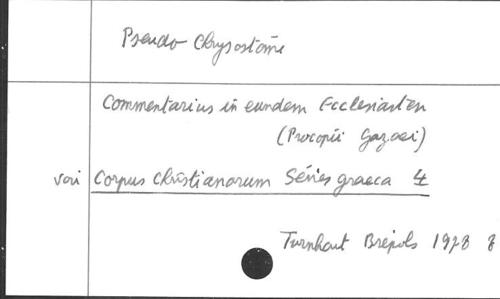 Pseudo Chrysostome
Commentarius in eundem Ecclesiasten
(Procopii Gazaei)
voir Corpus Christianorum Séries graeca 4
Turnhout Brépols 1978 8